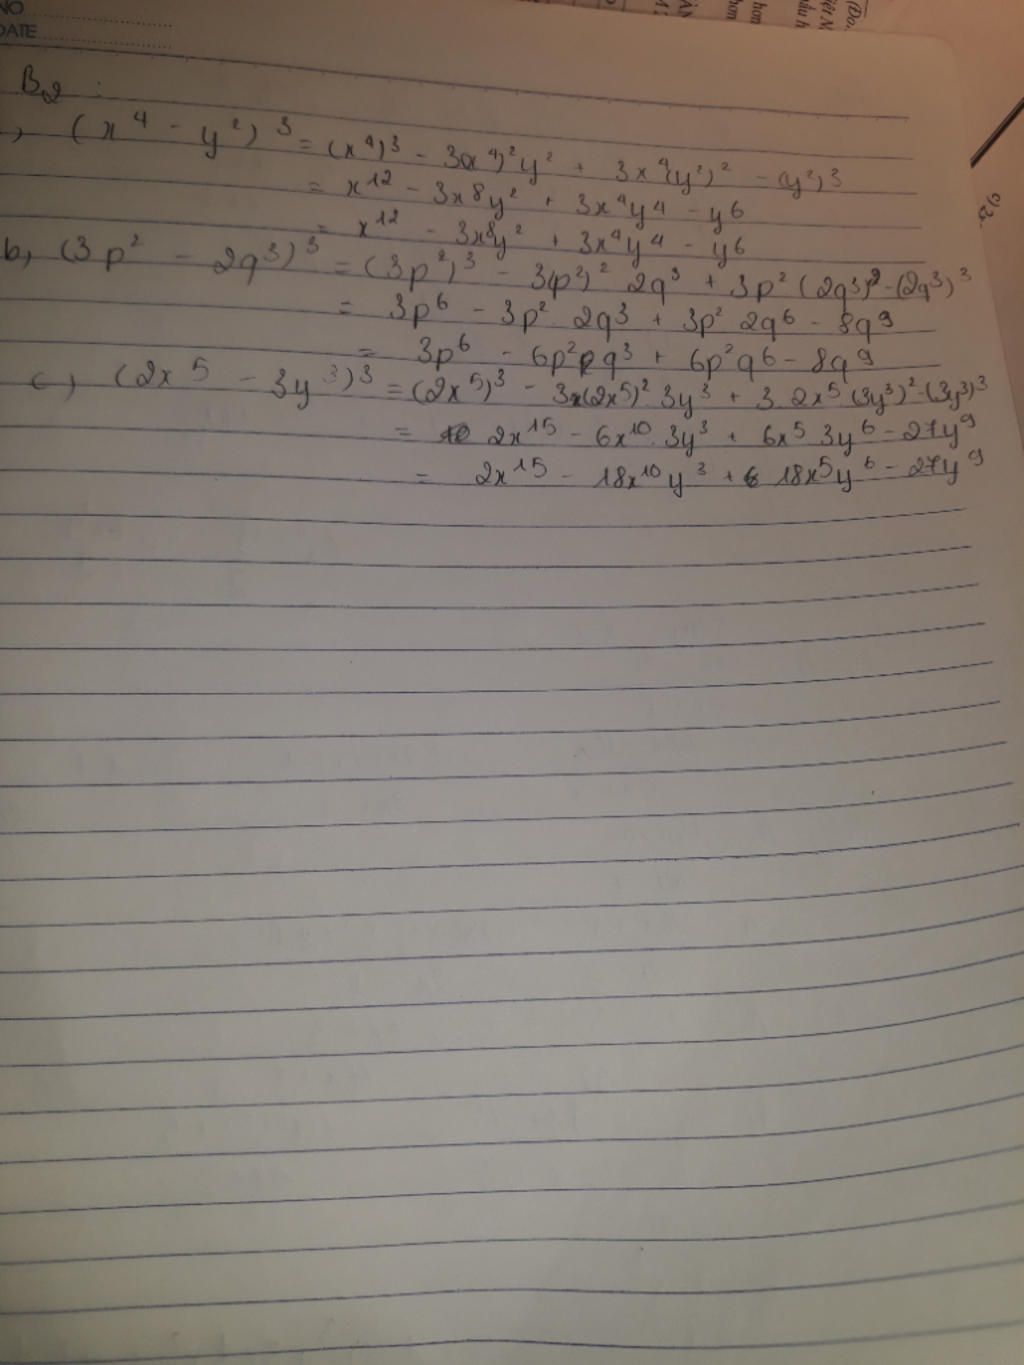 NO
DATE
B2 :
, (x⁴ - y²)³ = (x⁴)³ - 3(x⁴)²y² + 3x⁴(y²)² - (y²)³
= x¹² - 3x⁸y² + 3x⁴y⁴ - y⁶
= x¹² - 3x⁸y² + 3x⁴y⁴ - y⁶
b, (3p² - 2q³)³ = (3p²)³ - 3(p²)² 2q³ + 3p² (2q³)² - (2q³)³
= 3p⁶ - 3p² 2q³ + 3p² 2q⁶ - 8q⁹
= 3p⁶ - 6p²q³ + 6p²q⁶ - 8q⁹
c, (2x⁵ - 3y³)³ = (2x⁵)³ - 3(2x⁵)² . 3y³ + 3 . 2x⁵ (3y³)² - (3y³)³
= 2x¹⁵ - 6x¹⁰ . 3y³ + 6x⁵ 3y⁶ - 27y⁹
= 2x¹⁵ - 18x¹⁰y³ + 18x⁵y⁶ - 27y⁹